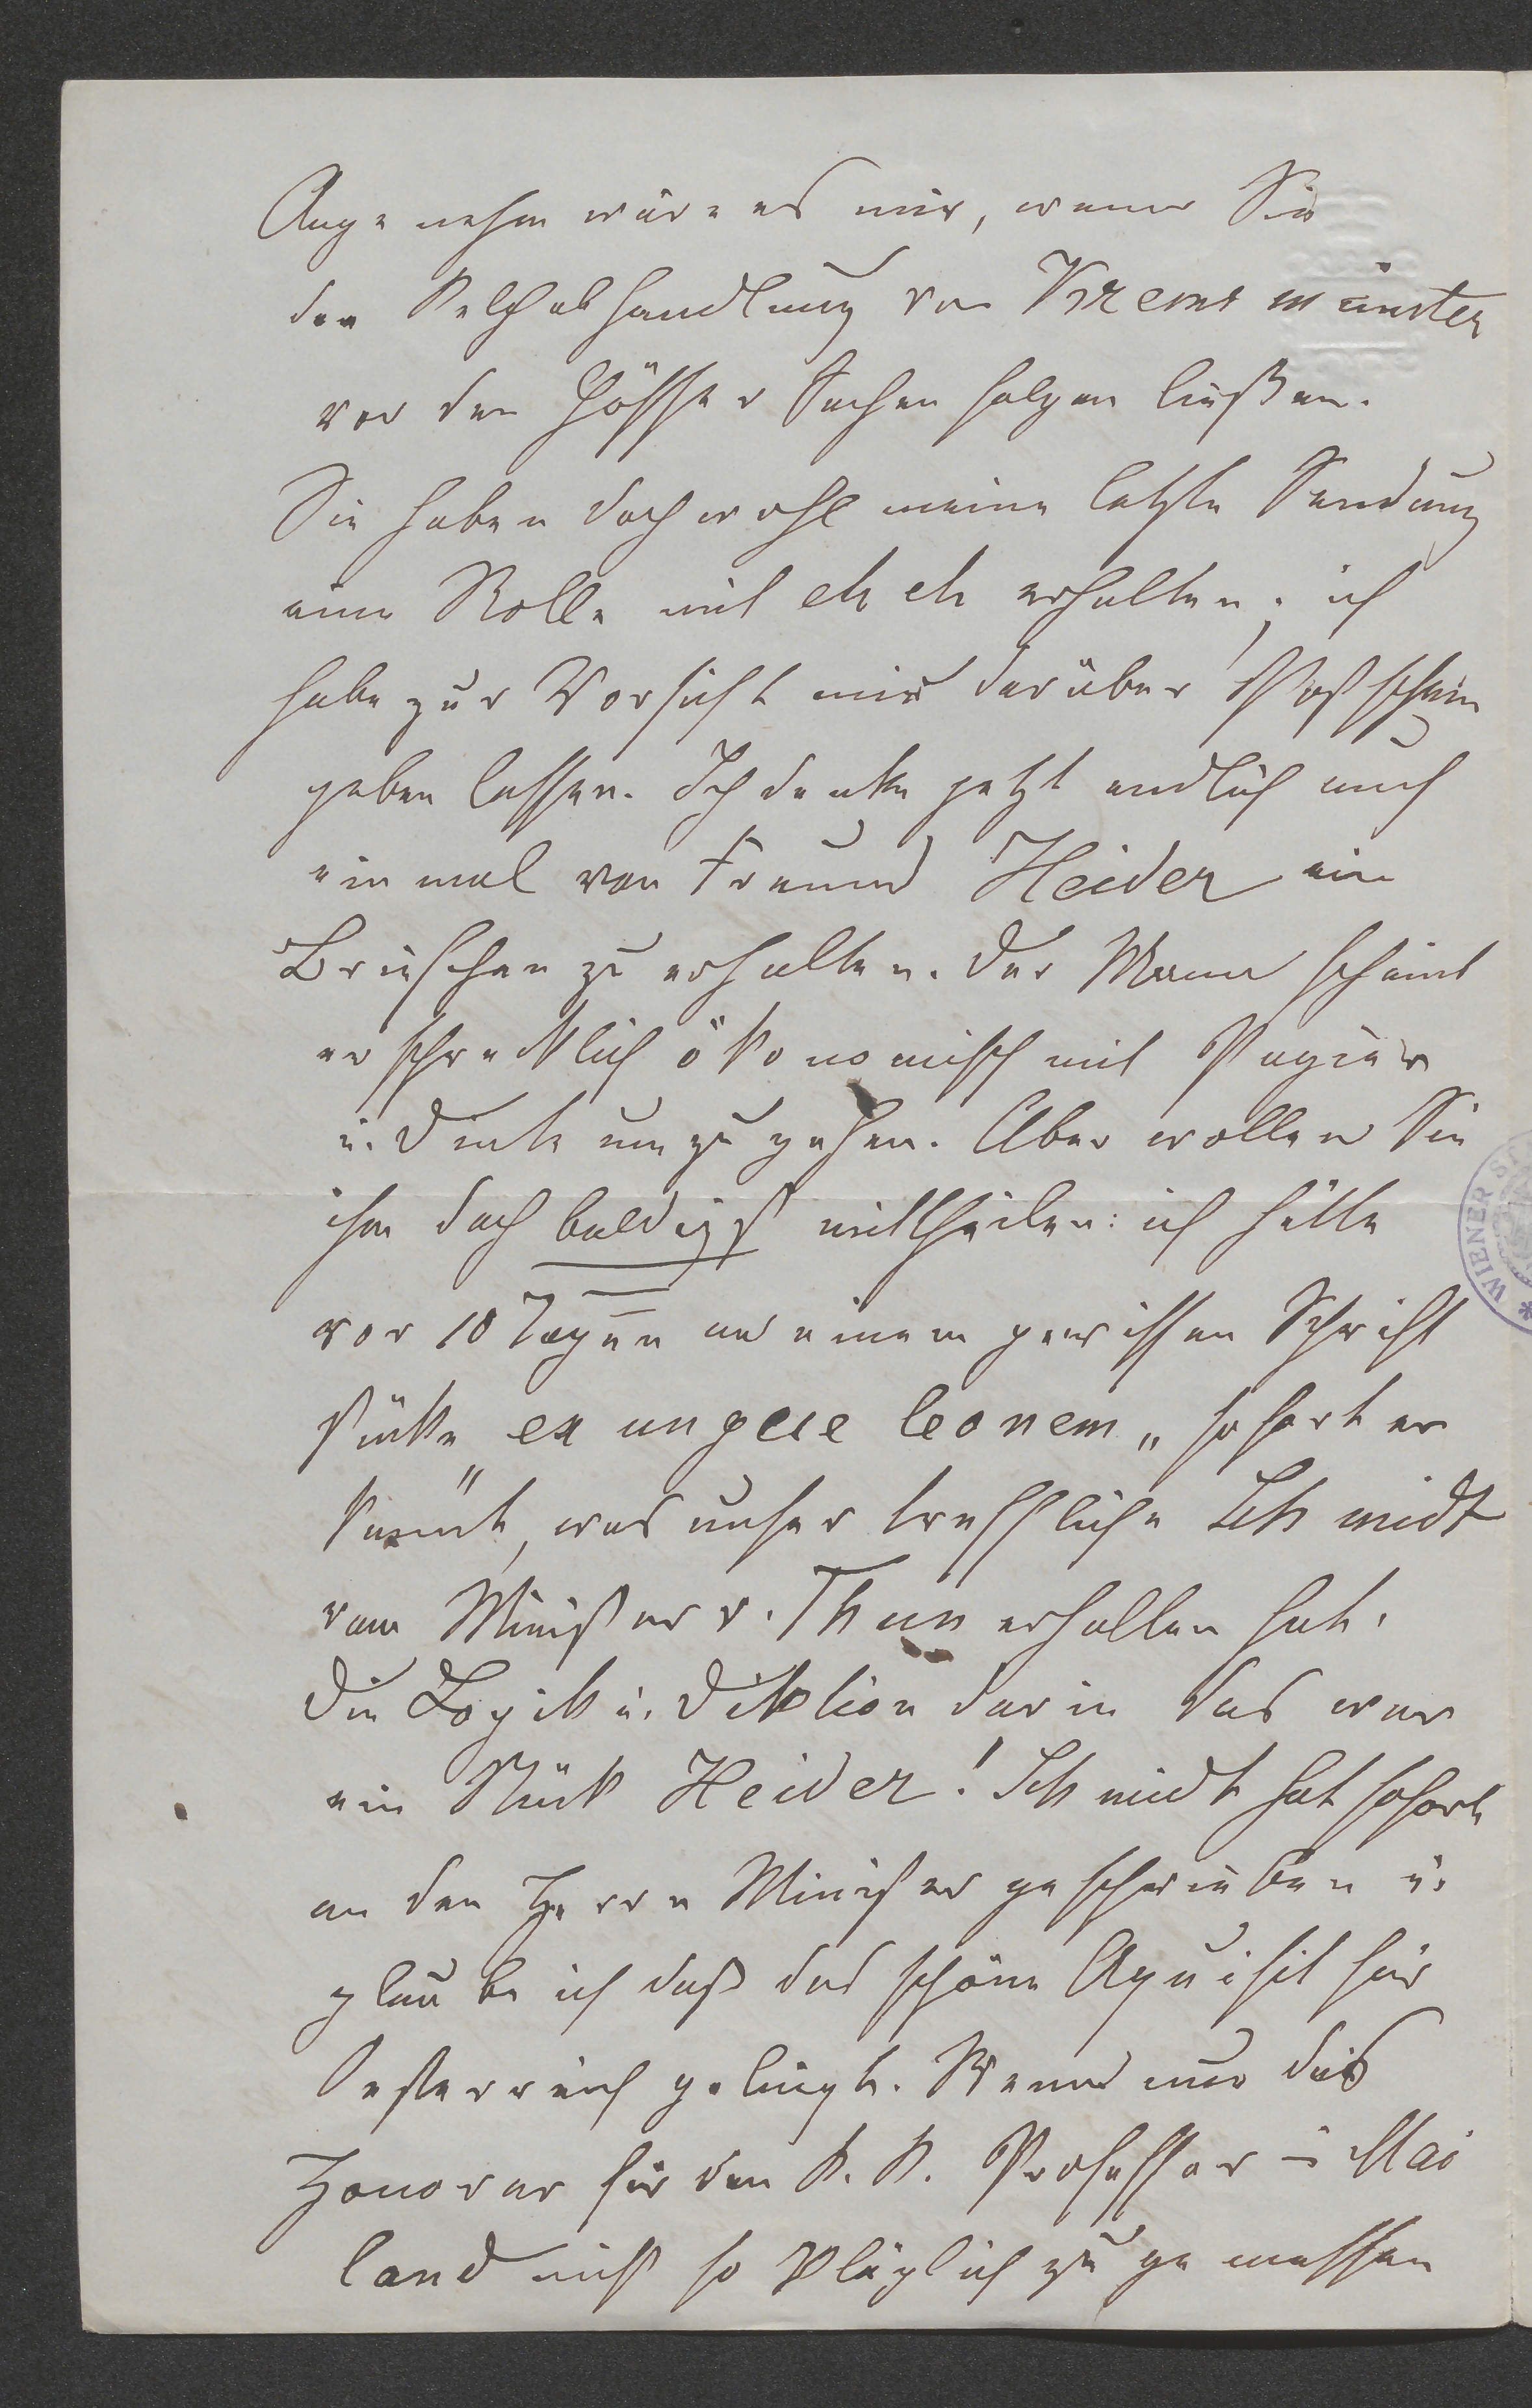 Angenehm wäre es mir, wenn Sie
den Kelchabhandlung von Kremsmünster
vor den Gösser Sachen folgen ließen.
Sie haben doch wohl meine letzte Sendung
eine Rolle mit etc etc erhalten; ich
habe zur Vorsicht mir darüber Postschein
geben lassen. Ich denke jetzt endlich auch
einmal von Freund Heider ein
Briefchen zu erhalten. Der Mann scheint
erschrecklich ökonomisch mit Papier
u. Dinte umzugehen. Aber wollen Sie
ihm doch baldigst mittheilen: ich hätte
vor 10 Tagen an einem gewissen Schrift
stücke „ex ungue leonem„ sofort er
kannt, was unser treffliche Schmidt
vom Minister v. Thun erhalten hat.
Die Logik u. Diktion darin das war
ein Stück Heider! Schmidt hat sofort
an den Herrn Minister geschrieben u.
glaube ich daß das schöne Aquisit für
Oesterreich gelingt. Wenn nur das
Honorar für den K. K. Professor in Mai
land nicht so kläglich zugemessen
WIENER ST